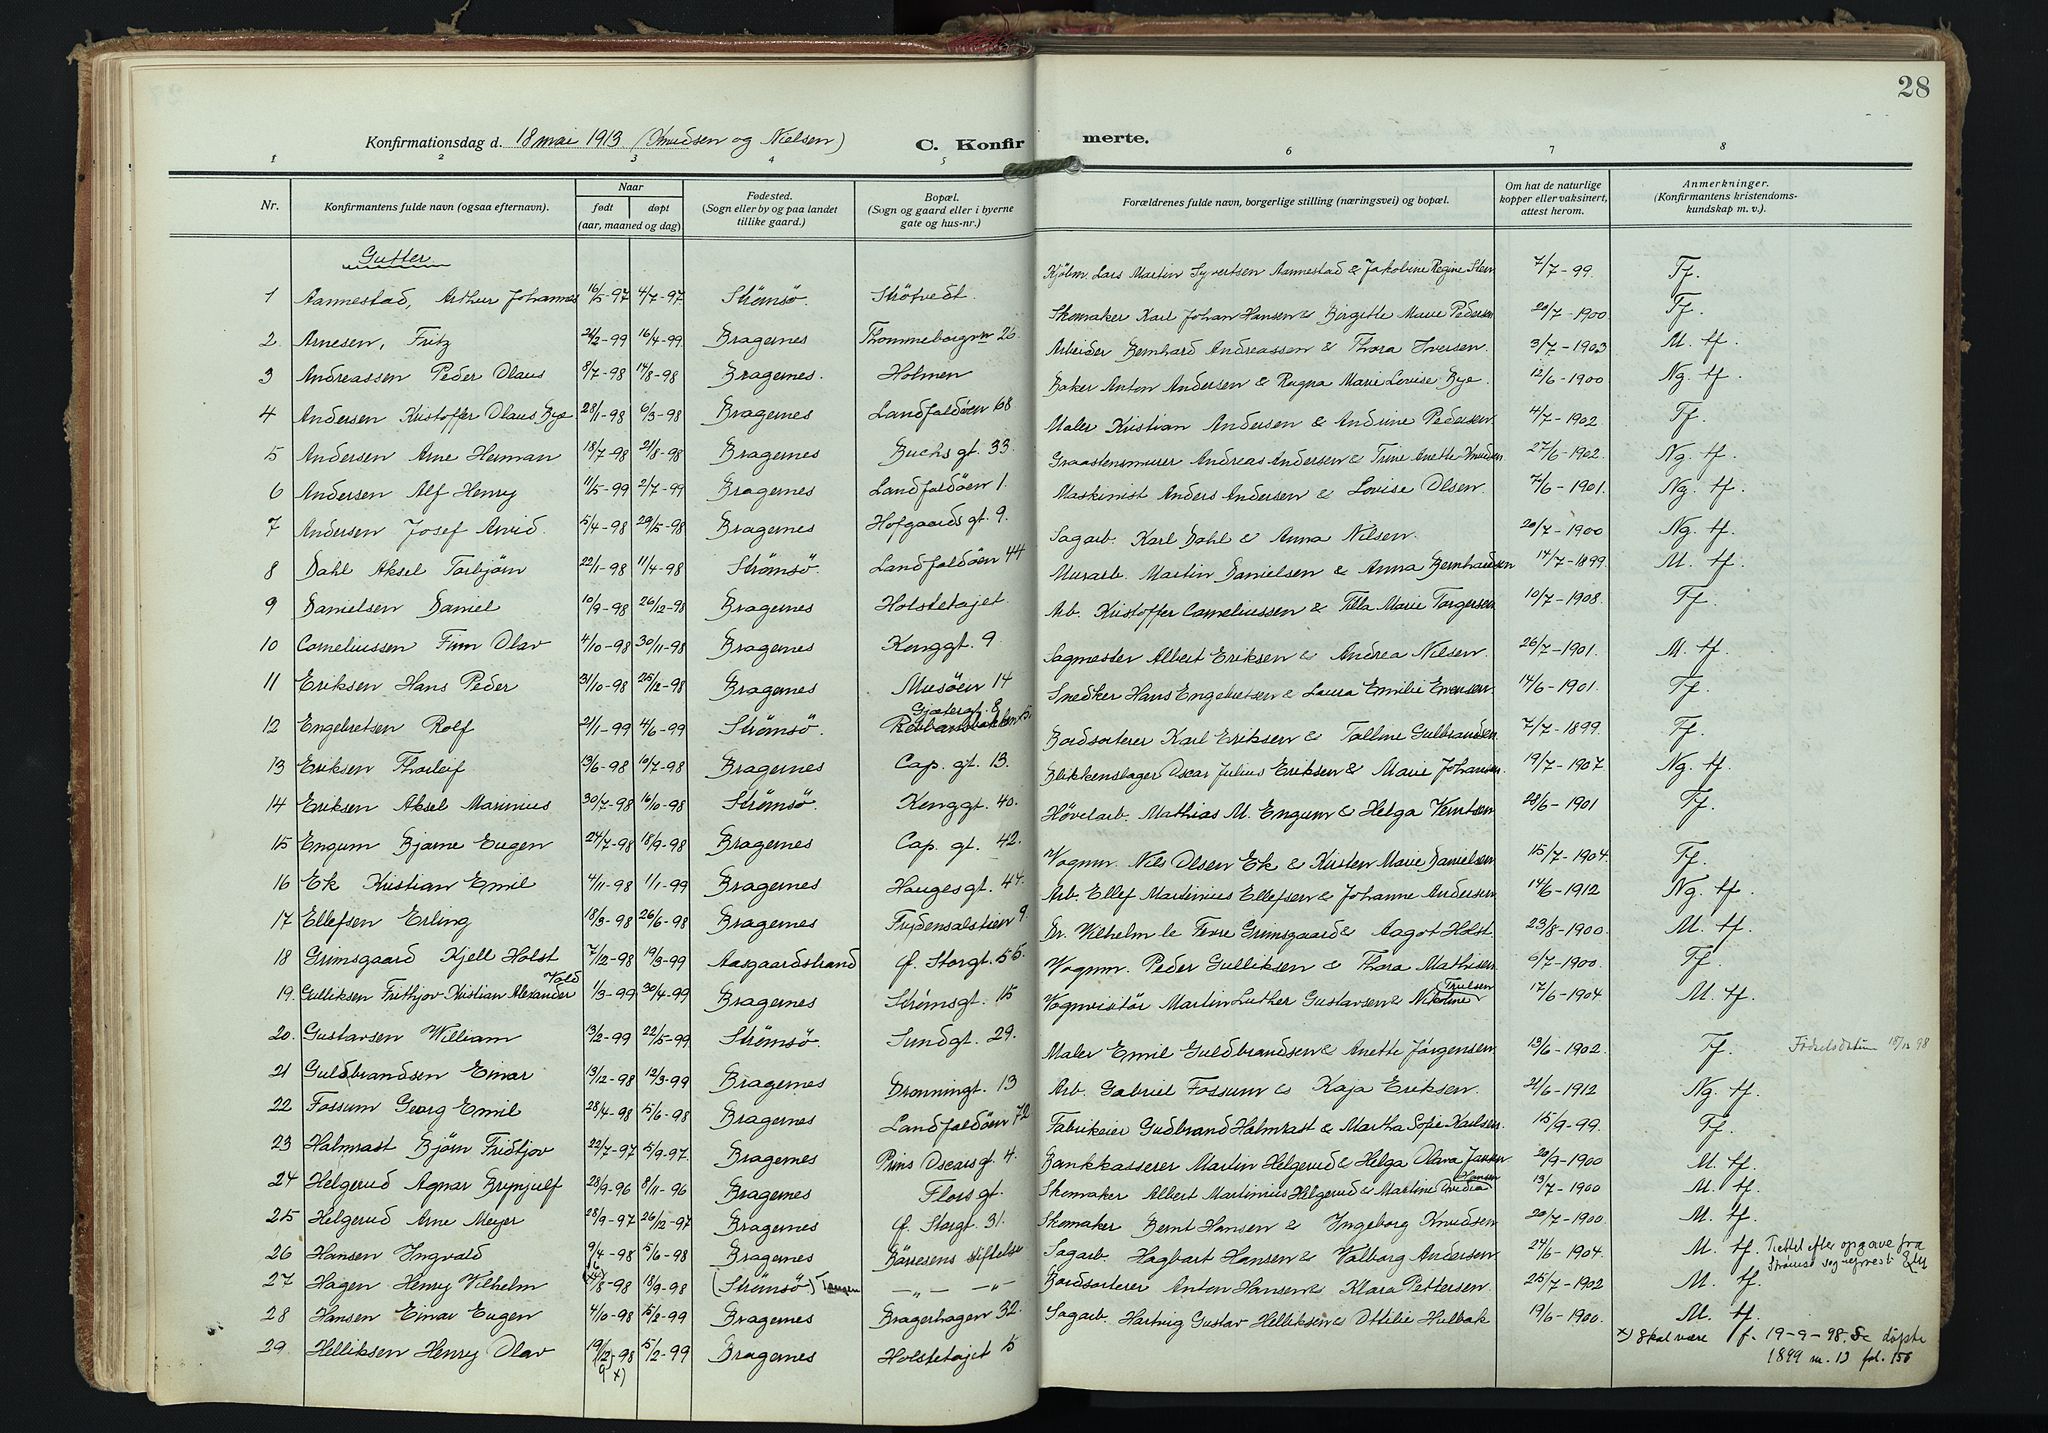 28
Konfirmationsdag d. 18 mai 1913 (Knudsen og Nielsen) C. Konfirmerte.
1 2 3 4 5 6 7 8
Nr. Konfirmantens fulde navn (ogsaa efternavn). Naar født døpt (aar, maaned og dag) Fødested. (Sogn eller by og paa landet tillike gaard.) Bopæl. (Sogn og gaard eller i byerne gate og hus-nr.) Forældrenes fulde navn, borgerlige stilling (næringsvei) og bopæl. Om hat de naturlige kopper eller vaksinert, attest herom. Anmerkninger. (Konfirmantens kristendoms-kundskap m. v.).
Gutter
1 Aannestad, Arthur Johannes 16/5-97 4/7-97 Strømsö. Strøtvedt. Kjölm. Lars Martin Syvertsen Aannestad & Jakobine Regine Steen 7/7-99. Tf.
2. Arnesen, Fritz 21/2-99 16/4-99 Bragernes Thommeborgvn 26 Skomaker Karl Johan Hansen & Birgitte Marie Pedersen 20/7-1900 Tf.
3 Andreassen Peder Olaus 8/7-98 14/8-98 Bragernes. Holmen Arbeider Bernhard Andreassen & Thora Iversen. 3/7-1903 M. tf.
4 Andersen Kristoffer Olaus Bye 28/1-98 6/3-98 Bragernes Landfaldöen 68 Baker Anton Andersen & Ragna Marie Lovise Bye. 12/6-1900 Ng. tf.
5 Andersen Arne Herman 18/7-98 21/8-98 Bragernes Buchs gt. 33. Maler Kristian Andersen & Andrine Pedersen. 4/7-1902 Tf.
6 Andersen Alf Henry 11/5-99 2/7-99 Bragernes Landfaldöen 1. Graastensmurer Andreas Andersen & Trine Anette Knudsen 27/6-1902. Ng. tf.
7 Andersen Josef Arvid 5/4-98 29/5-98 Bragernes Hofgaards gt. 9. Maskinist Anders Andersen & Lovise Olsen. 7/6-1901. Ng. tf.
8 Dahl Aksel Torbjörn 22/1-98 11/4-98 Strömsö. Landfaldöen 44 Sagarb. Karl Dahl & Anna Nilsen. 20/7-1900 Ng. tf.
9 Danielsen Daniel 10/9-98 26/12-98 Bragernes Holstetajet. Murarb. Martin Danielsen & Anna Bernhardsen 14/7-1899. M. tf.
10 Corneliussen Finn Olav 4/10-98 30/11-98 Bragernes Konggt. 9 Arb. Kristoffer Corneliussen & Tilla Marie Torgersen 10/7-1908. Tf.
11 Eriksen Hans Peder 31/10-98 25/12-98 Bragernes Musöen 14 Sagmester Albert Eriksen & Andrea Nilsen. 26/7-1901. M. tf.
12 Engebretsen Rolf 21/1-99 4/6-99 Strömsö. Gjætergt. 8 Snedker Hans Engebretsen & Laura Emilie Evensen 14/6-1901. Tf.
13 Eriksen Thorleif 13/6-98 10/7-98 Bragernes Cap. gt. 13. Bordsorterer Karl Eriksen & Talline Gulbrandsen 7/7-1899. Tf.
14 Eriksen Aksel Marinius 30/7-98 16/10-98 Strömsö. Konggt. 40. Blikkenslager Oscar Julius Eriksen & Marie Johansen 19/7-1907. Ng. tf.
15 Engum Bjarne Eugen 24/7-98 18/9-98 Bragernes Cap. gt. 42. Hövelarb. Mathias M. Engum & Helga Verntsen 28/6-1901 Tf.
16 Ek Kristian Emil 4/11-98 1/1-99 Bragernes Hauges gt. 44. Vognm. Nils Olsen Ek & Kirsten Marie Danielsen 15/7-1904. Tf.
17 Ellefsen Erling 18/3-98 26/6-98 Bragernes Frydensalstien 9. Arb. Ellef Martinius Ellefsen & Johanne Andersen 14/6-1912 Ng. tf.
18 Grimsgaard Kjell Holst 7/12-98 19/3-99 Aasgaardstrand Ø. Storgt. 55. Dr. Vilhelm le Fevre Grimsgaard & Aagot Holst. 23/8-1900. M. tf.
19. Gulliksen Frithjov Kristian Alexander Vold 1/3-99 30/4-99 Bragernes Strömsgt. 15 Vognm. Peder Gulliksen & Thora Mathisen 6/7-1900. Tf.
20. Gustavsen William 13/2-99 22/5-99 Strömsö. Sundgt. 29. Vognvisitör Martin Luther Gustavsen & Nikoline Trulsen 17/6-1904. M. tf.
21 Guldbrandsen Einar 13/12-98 12/3-99 Bragernes Dronningt. 13 Maler Emil Guldbrandsen & Anette Jörgensen. 13/6-1902. Tf. Fødselsdatum 18/12 98
22 Fossum Georg Emil 28/4-98 5/6-98 Bragernes Landfaldöen 72 Arb. Gabriel Fossum & Kaja Eriksen. 21/6-1912 Ng. tf.
23 Halmrast Björn Fridtjov 22/7-97 5/9-97. Bragernes Prins Oscars gt. 4. Fabrikeier Gudbrand Halmrast & Martha Sofie Karlsen. 15/9-99. Tf.
24 Helgerud Agnar Brynjulf 28/9-96 8/11-96 Bragernes Flors gt. Bankkasserer Martin Helgerud & Helga Olava Jansen 20/9-1900 M. tf.
25 Helgerud Arne Meyer 28/9-97 26/12-97 Bragernes Ø. Storgt. 31. Skomaker Albert Martinius Helgerud & Martine Hansen 13/7-1900 M. tf.
26 Hansen Ingvald 9/4-98 5/6-98 Bragernes Börresens stiftelse Skomaker Bernt Hansen & Ingeborg Knudsen 20/7-1900. M. tf.
27 Hagen Henry Vilhelm 16/8-98 18/9-98 (Strömsö) Tangen —„— —„— Sagarb. Hagbart Hansen & Valborg Andersen 24/6-1904. M. tf. Rettet efter opgave fra Strømsø sogneprest
28 Hansen Einar Eugen 4/10-98 5/2-99 Bragernes Bragerhagen 32. Bordsorterer Anton Hansen & Klara Pettersen. 25/7-1902 M. tf.
29. Helliksen Henry Olav 19/12-98 5/2-99 Bragernes Holstetajet 5 Sagarb. Hartvig Gustav Helliksen & Ottilie Hulbak 19/6-1900. M. tf.
9 x)
x) Skal være f. 19-9-98. Se døpte
1899 m. 13 fol. 156